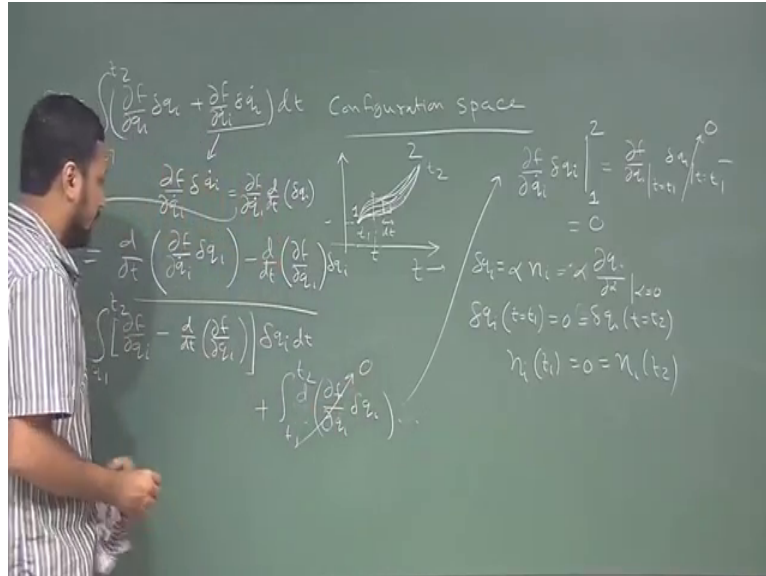 ∫^{t₂} (∂f/∂qᵢ δqᵢ + ∂f/∂q̇ᵢ δq̇ᵢ) dt
Configuration space
∂f/∂q̇ᵢ δq̇ᵢ = ∂f/∂q̇ᵢ d/dt (δqᵢ)
= d/dt (∂f/∂q̇ᵢ δqᵢ) - d/dt (∂f/∂q̇ᵢ) δqᵢ
∫_{t₁}^{t₂} [∂f/∂qᵢ - d/dt (∂f/∂q̇ᵢ)] δqᵢ dt
+ ∫_{t₁}^{t₂} d (∂f/∂q̇ᵢ δqᵢ) ... 0
2
t₂
1
t₁
dt
t
t →
∂f/∂q̇ᵢ δqᵢ |₁² = ∂f/∂q̇ᵢ |_{t=t₁} δqᵢ |_{t=t₁} 0 -
= 0
δqᵢ = α ηᵢ = α ∂qᵢ/∂α |_{α=0}
δqᵢ (t=t₁) = 0 = δqᵢ (t=t₂)
ηᵢ (t₁) = 0 = ηᵢ (t₂)